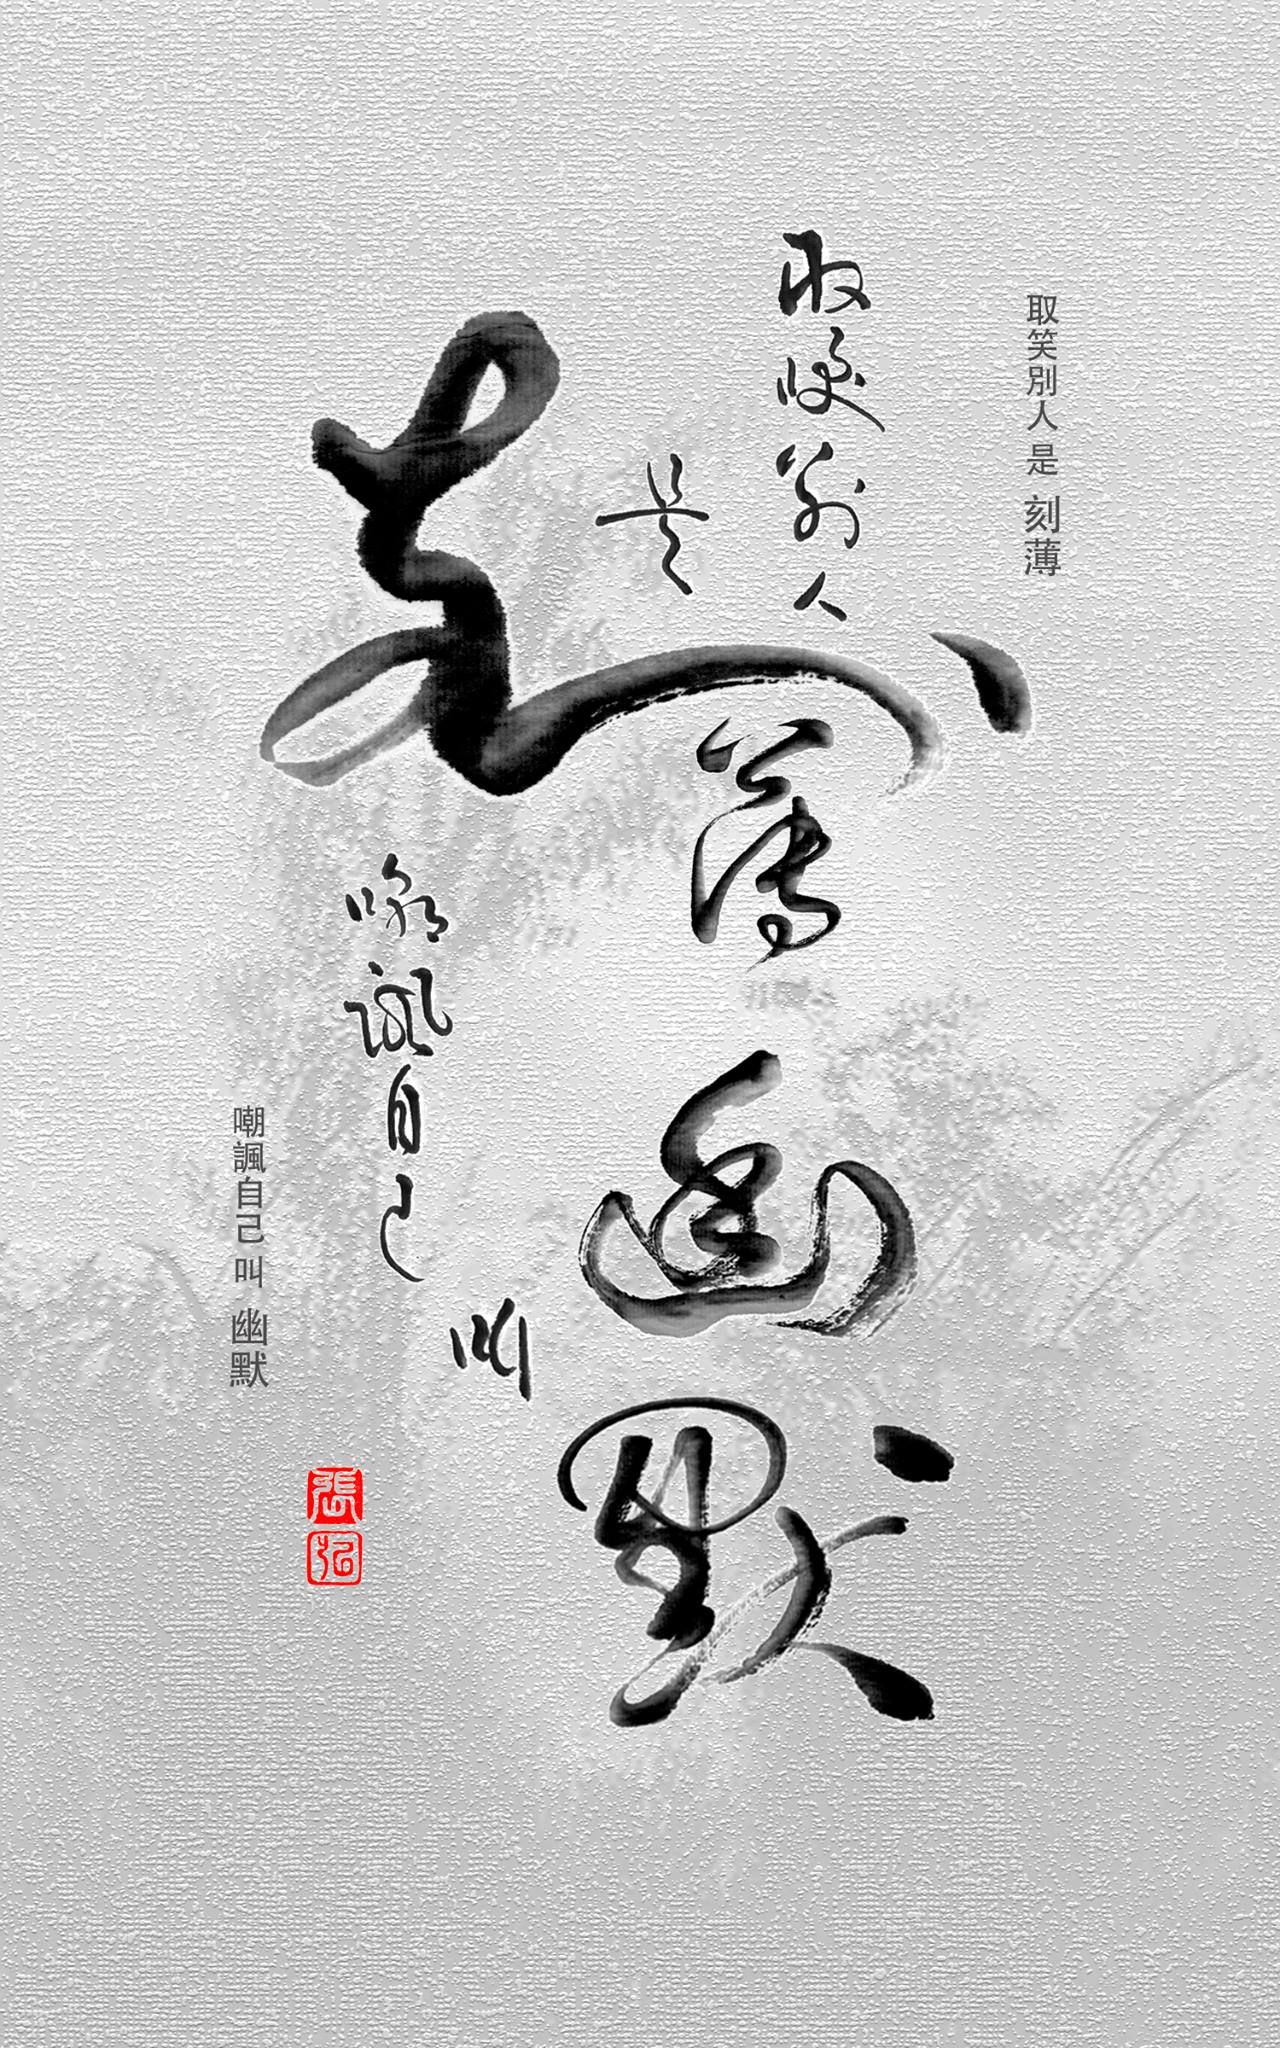 取笑別人是刻薄
取笑别人
是
刻薄
嘲諷自己叫幽默
嘲諷自己
叫
幽默
張